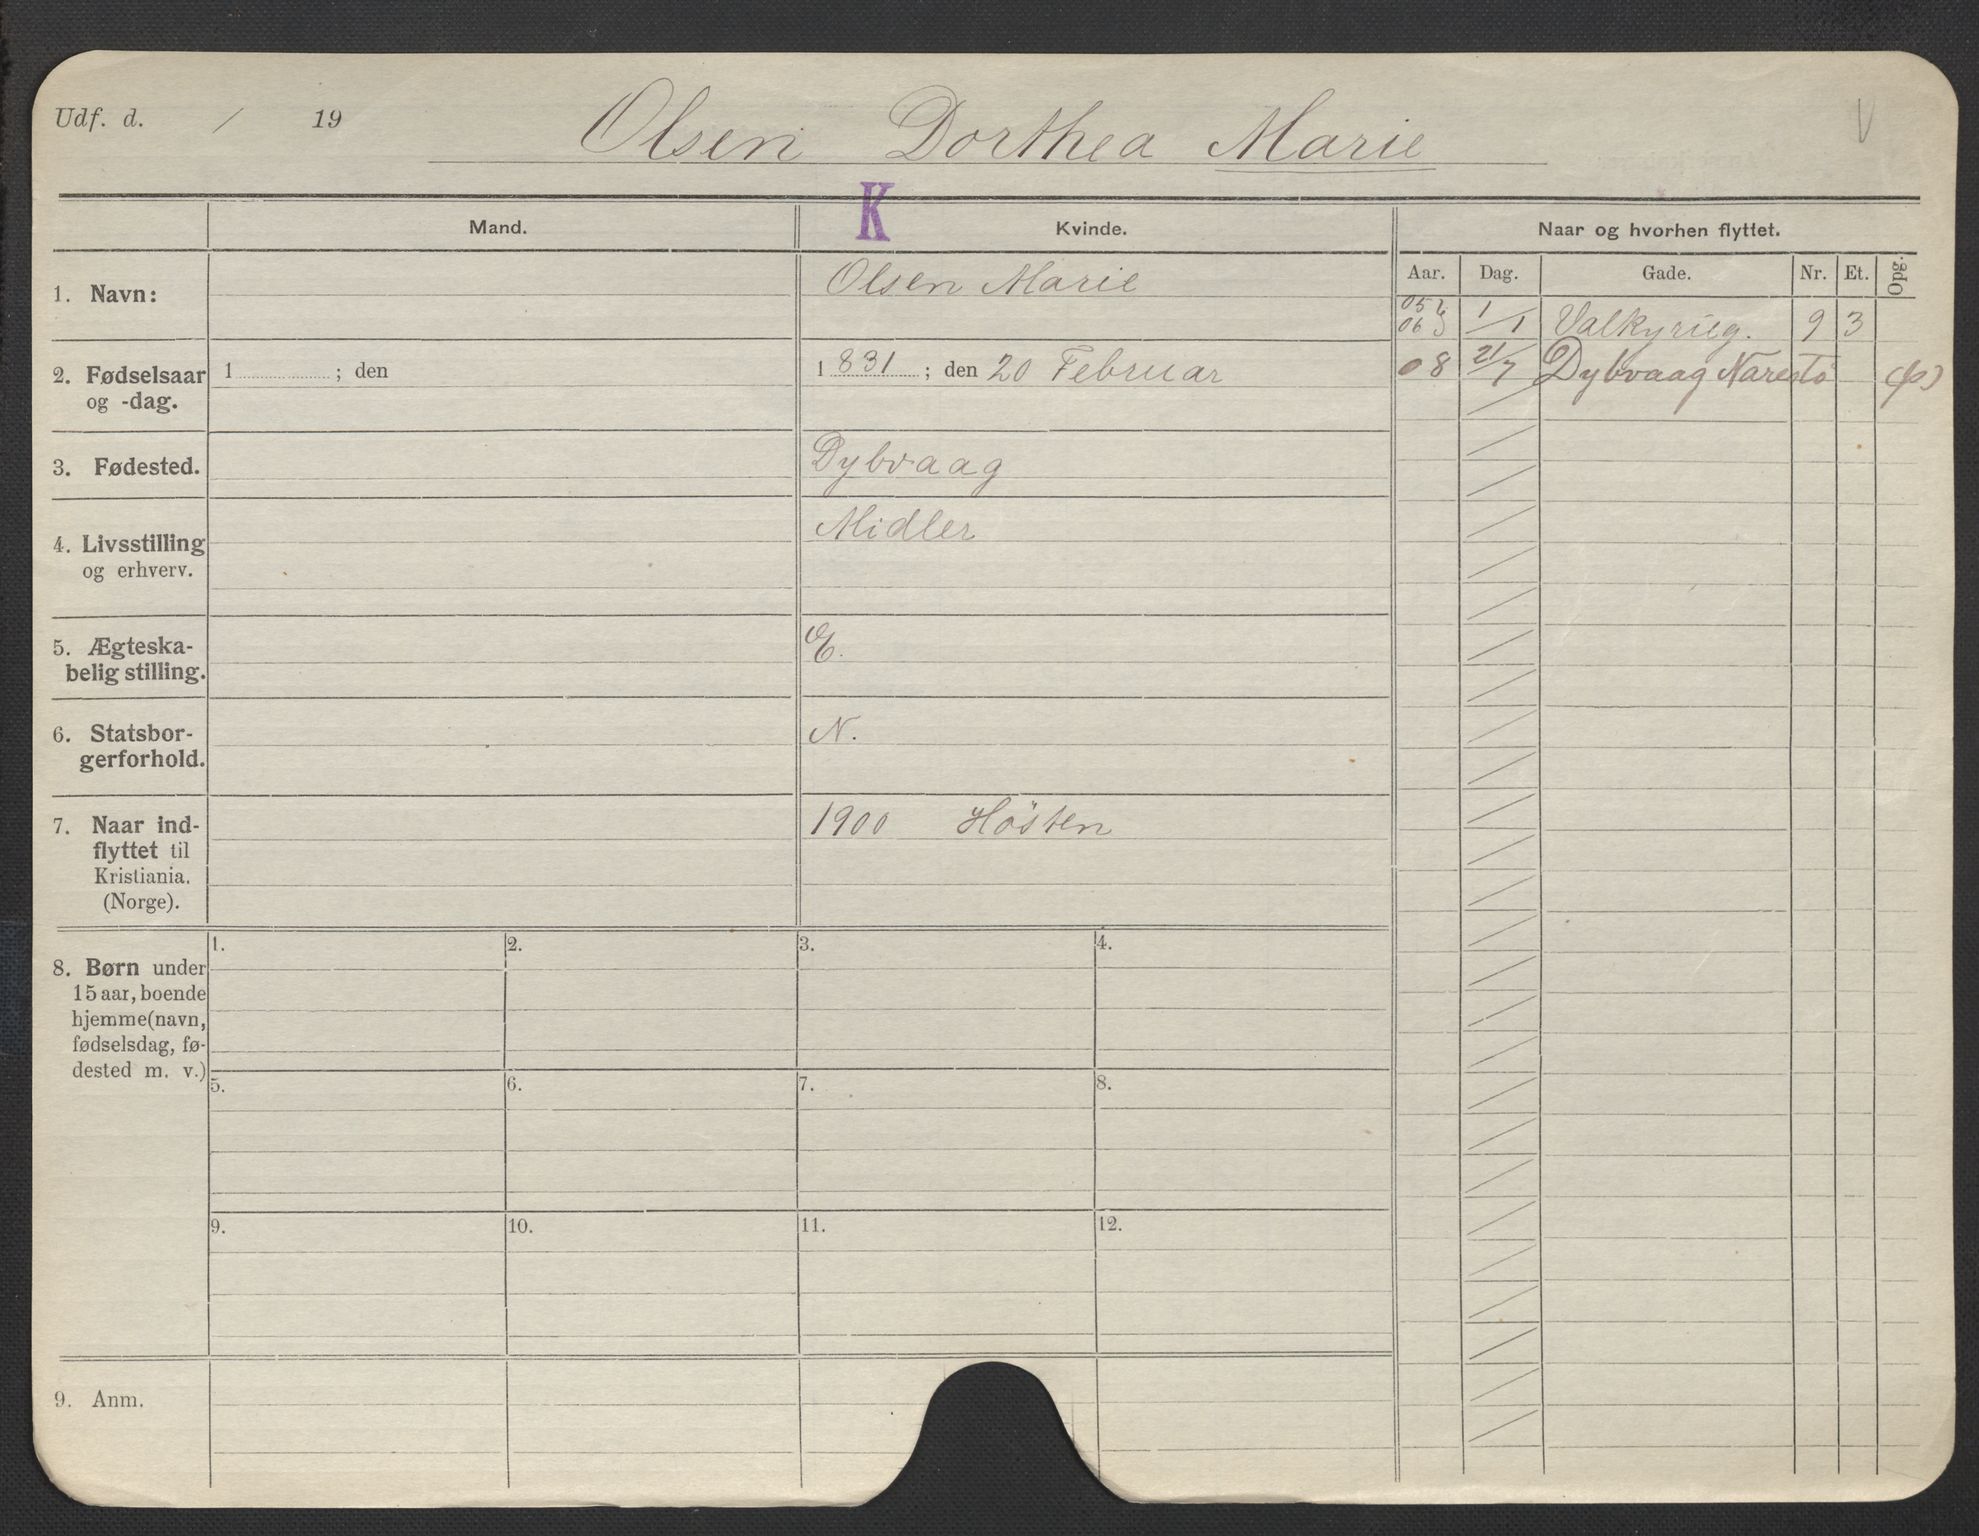 Udf. d. / 19 Olsen Dorthea Marie V
K
Mand. Kvinde. Naar og hvorhen flyttet.
Aar. Dag. Gade. Nr. Et. Opg.
1. Navn: Olsen Marie
05 06 1/1 Valkyrieg. 9 3
2. Fødselsaar og -dag. 1 ; den 1831 ; den 20 Februar
08 21/7 Dybvaag Narestö (p)
3. Fødested. Dybvaag
4. Livsstilling og erhverv. Midler
5. Ægteska-
belig stilling. E.
6. Statsbor-
gerforhold. N.
7. Naar ind-
flyttet til
Kristiania.
(Norge). 1900 Hösten
8. Børn under
15 aar, boende
hjemme (navn,
fødselsdag, fø-
dested m. v.)
1. 2. 3. 4.
5. 6. 7. 8.
9. 10. 11. 12.
9. Anm.